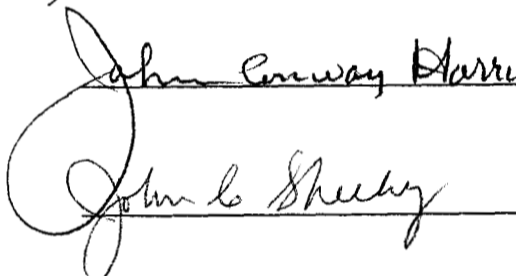 John Conway Harri
John C Sheehy